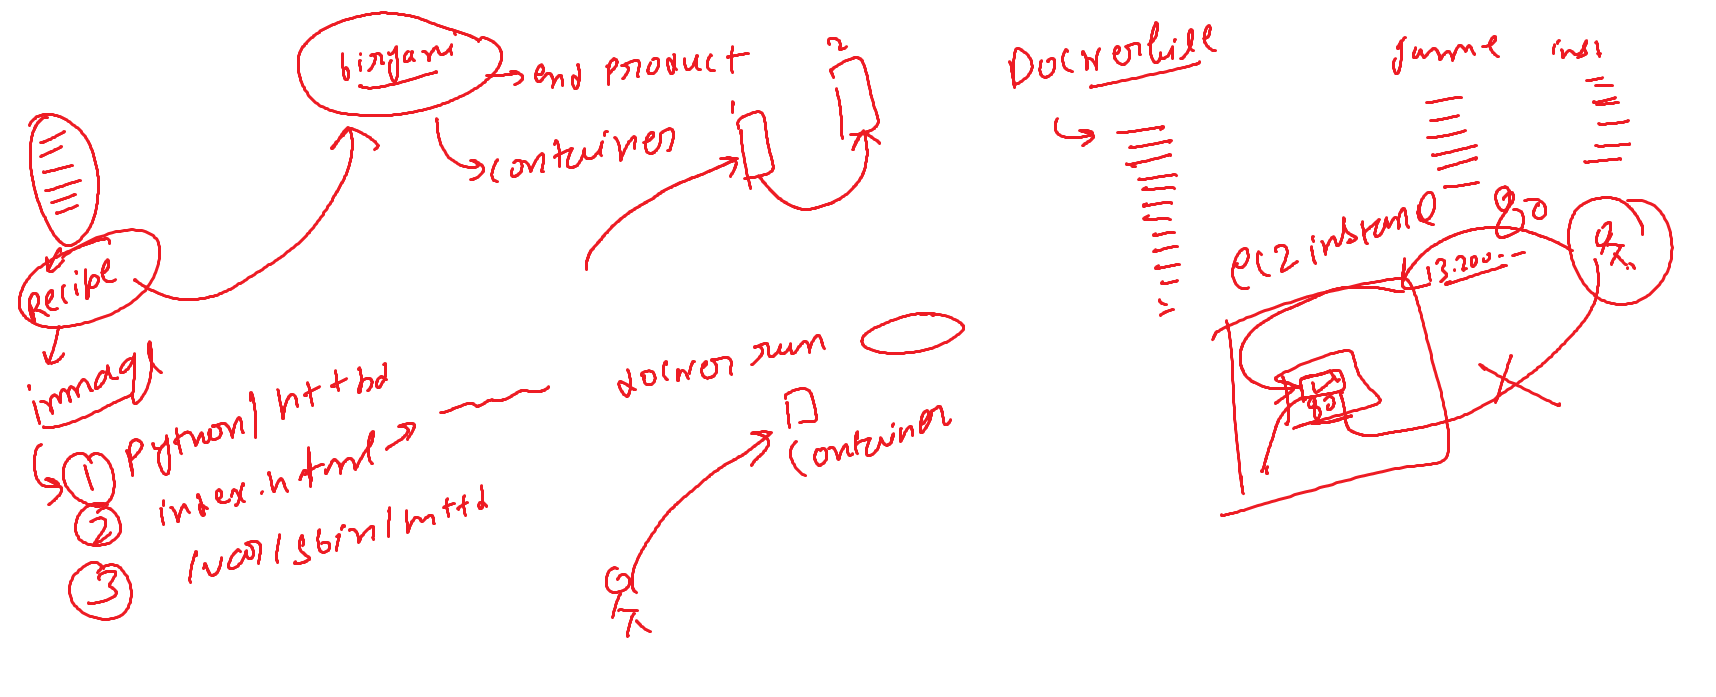 biryani
end product
container
Recipe
image
1 Python/httpd
2 index.html
3 /var/sbin/httd
1
2
docker run
container
Dockerfile
ec2 instance
80
13.200...
80